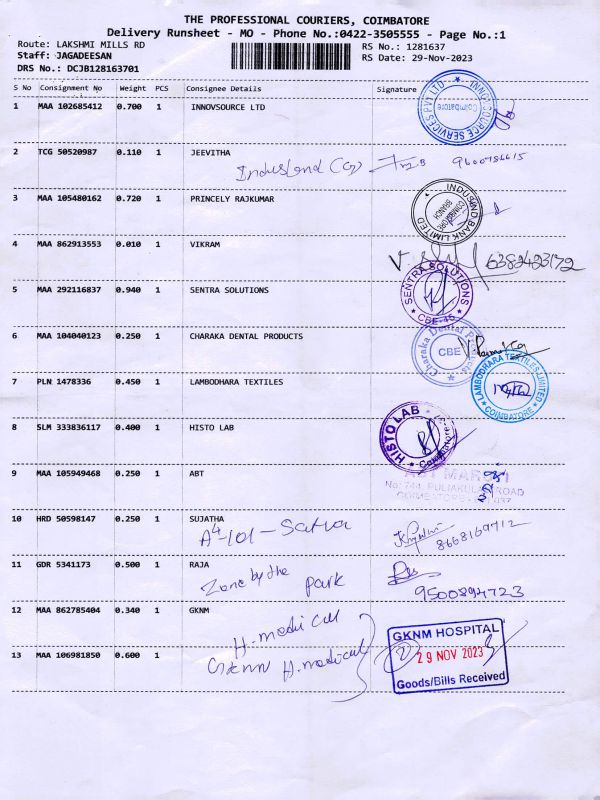 THE PROFESSIONAL COURIERS, COIMBATORE
Delivery Runsheet - MO - Phone No.:0422-3505555 - Page No.:1
Route: LAKSHMI MILLS RD
RS No.: 1281637
Staff: JAGADEESAN
RS Date: 29-Nov-2023
DRS No.: DCJB128163701
S No Consignment No Weight PCS Consignee Details Signature
1 MAA 102685412 0.700 1 INNOVSOURCE LTD
INNOVSOURCE SERVICES PVT LTD Coimbatore
2 TCG 50520987 0.110 1 JEEVITHA
3 MAA 105480162 0.720 1 PRINCELY RAJKUMAR
INDUSIND BANK LIMITED COIMBATORE BRANCH
4 MAA 862913553 0.010 1 VIKRAM
6382423172
5 MAA 292116837 0.940 1 SENTRA SOLUTIONS
SENTRA SOLUTIONS CBE-45
6 MAA 104040123 0.250 1 CHARAKA DENTAL PRODUCTS
Charaka Dental Products CBE
7 PLN 1478336 0.450 1 LAMBODHARA TEXTILES
LAMBODHARA TEXTILES LIMITED COIMBATORE
8 SLM 333836117 0.400 1 HISTO LAB
HISTO LAB Coimbatore
9 MAA 105949468 0.250 1 ABT
No: 744, PULIAKULAM ROAD
COIMBATORE
10 HRD 50598147 0.250 1 SUJATHA
8668169712
11 GDR 5341173 0.500 1 RAJA
Zone by the park
9500894723
12 MAA 862785404 0.340 1 GKNM
H.medical
GKNM HOSPITAL
29 NOV 2023
Goods/Bills Received
13 MAA 106981850 0.600 1
GKNM H.medical